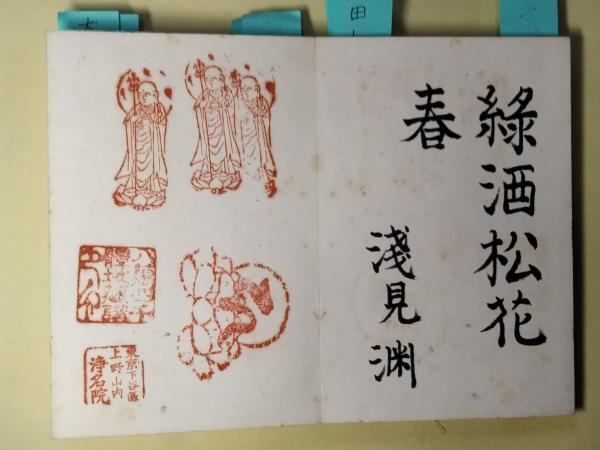 綠酒松花
春
淺見渊
東京下谷區
上野山内
浄名院
田